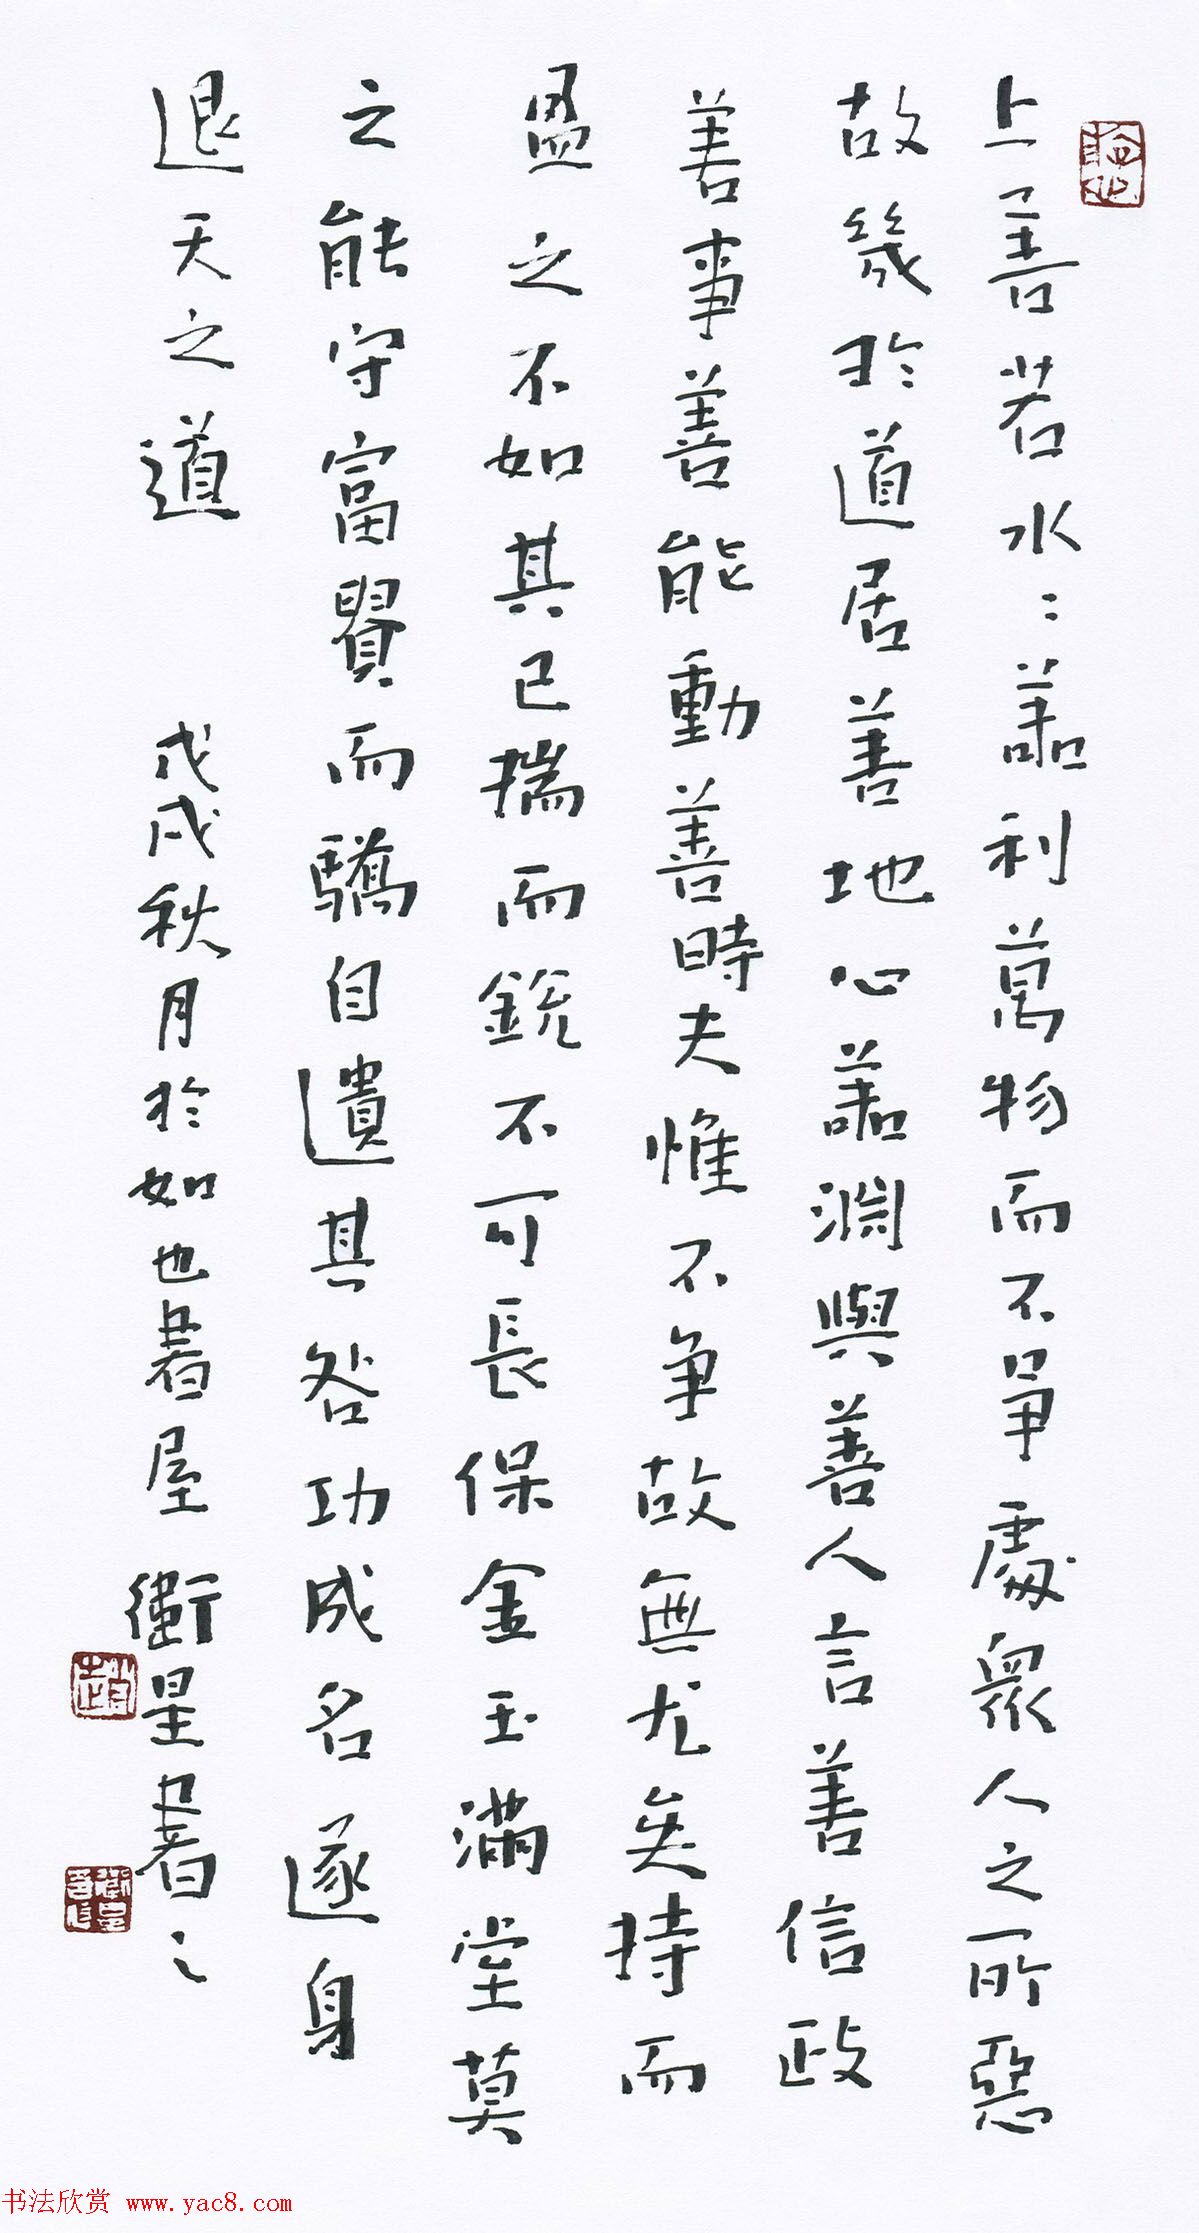 上善若水〻善利萬物而不爭處眾人之所惡
故幾於道居善地心善淵與善人言善信政
善事善能動善時夫惟不爭故無尤矣持而
盈之不如其已揣而銳不可長保金玉滿堂莫
之能守富貴而驕自遺其咎功成名遂身
退天之道
戊戌秋月於如也書屋 衛星書之
趙
书法欣赏 www.yac8.com